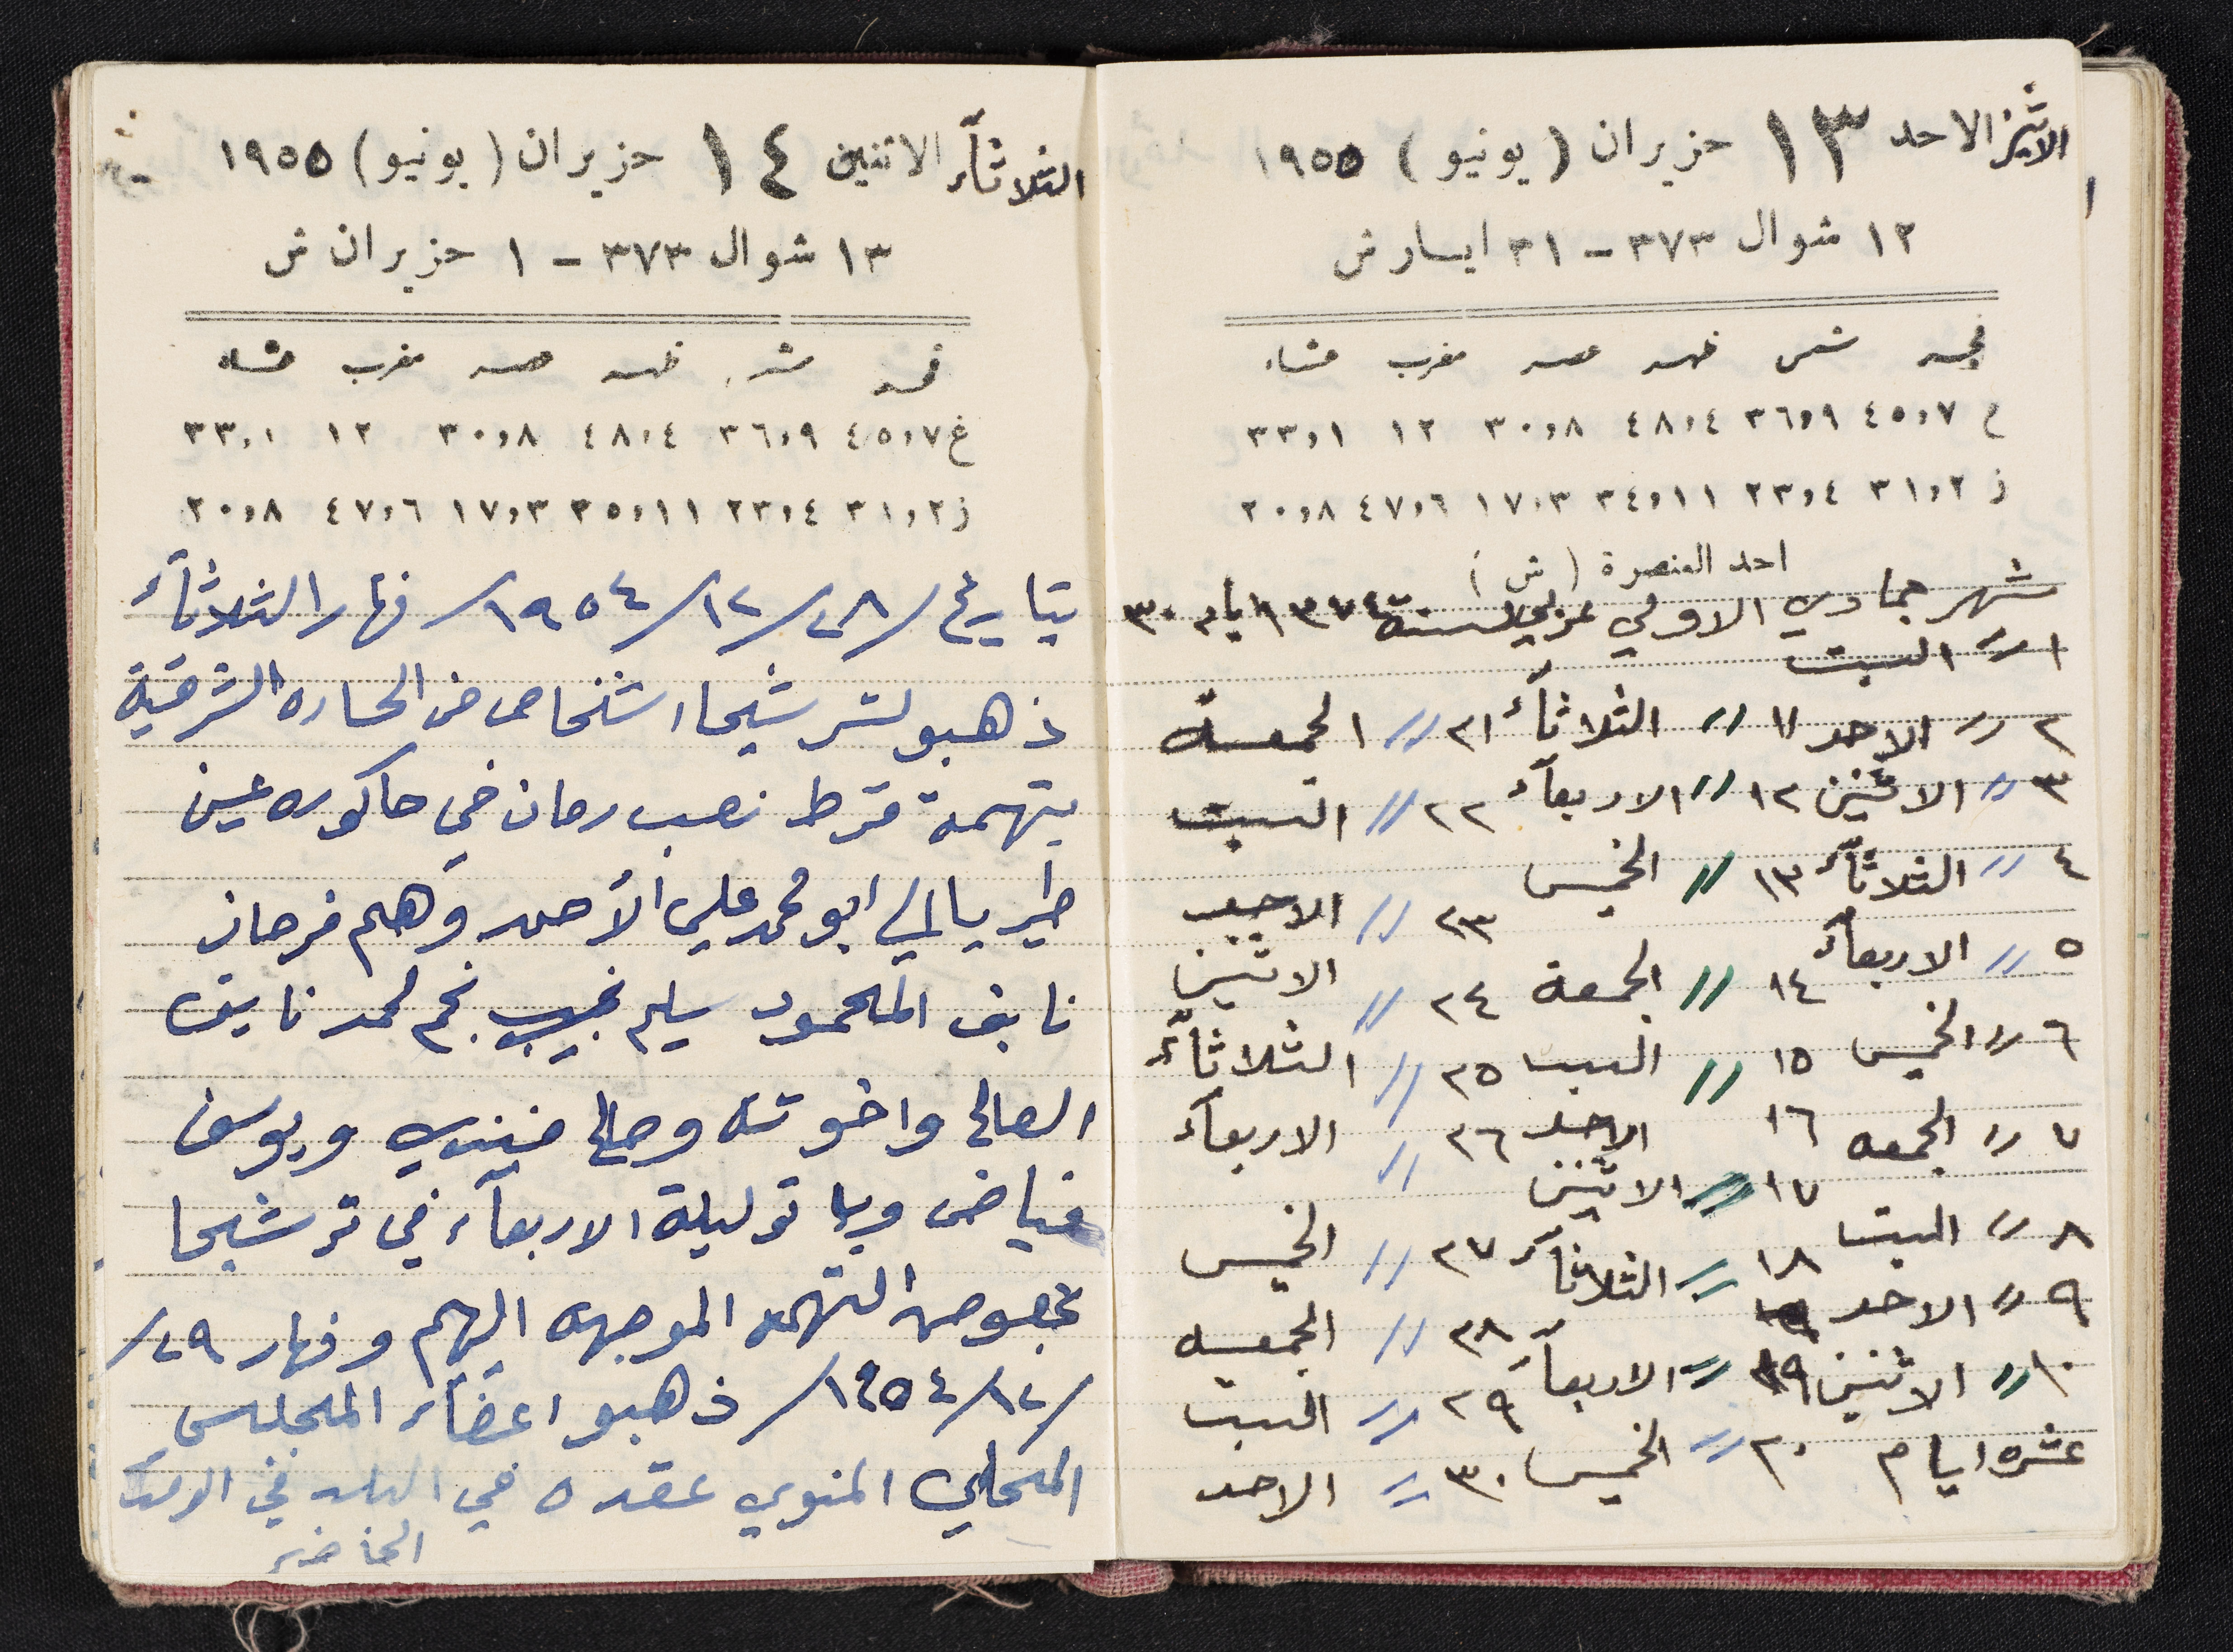 الاثنين الاحد ١٣ حزيران (يونيو) ١٩٥٥
١٢ شوال ٣٧٣ - ٣١ ايار ش
فجر شمس ظهر عصر مغرب عشاء
غ ٤٥,٧ ٣٦,٩ ٤٨,٤ ٣٠,٨ ١٢ ٣٣,١
ز ٣١,٢ ٢٣,٤ ٣٤,١١ ١٧,٣ ٤٧,٦ ٢٠,٨
احد العنصرة (ش)
شهر جمادي الاولي عربي لسنة ١٣٧٤ ايام ٣٠
١ // السبت
٢ // الاحد ١١ // الثلاثآء ٢١ // الجمعة
٣ // الاثنين ١٢ // الاربعآء ٢٢ // السبت
٤ // الثلاثآء ١٣ // الخميس ٢٣ // الاحد
٥ // الاربعآء ١٤ // الجمعة ٢٤ // الاثنين
٦ // الخميس ١٥ // السبت ٢٥ // الثلاثآء
٧ // الجمعه ١٦ الاحد ٢٦ // الاربعآء
٨ // السبت ١٧ // الاثنين ٢٧ // الخميس
٩ // الاحد ١٨ // الثلاثآء ٢٨ // الجمعه
١٠ // الاثنين ١٩ // الاربعآء ٢٩ // السبت
عشره ايام ٢٠ // الخميس ٣٠ // الاحد
الثلاثآء الاثنين ١٤ حزيران (يونيو) ١٩٥٥
١٣ شوال ٣٧٣ - ١ حزيران ش
فجر شمس ظهر عصر مغرب عشاء
غ ٤٥,٧ ٣٦,٩ ٤٨,٤ ٣٠,٨ ١٢ ٣٣,١
ز ٣١,٢ ٢٣,٤ ٣٥,١١ ١٧,٣ ٤٧,٦ ٢٠,٨
بتاريخ /٢٨/١٢/١٩٥٤/ نهار الثلاثآء
ذهبو لترشيحا اشخاص من الحاره الشرقية
بتهمة قرط نصب رمان في حاكوره عين
طير يالي ابو محمد علي الأحمد وهم فرحان
نايف المحمود سليم نجيب نجم لحمد نايف
الصالح واخوته وصالح فندي ويوسف
فياض وباتو ليلة الاربعآء في ترشيحا
بخصوص التهمه الموجهه اليهم ونهار ٢٩/
/١٢/١٩٥٤/ ذهبو اعضآء المجلس
المحلي المنوي عقده في البلد في الوقت
الحاضر